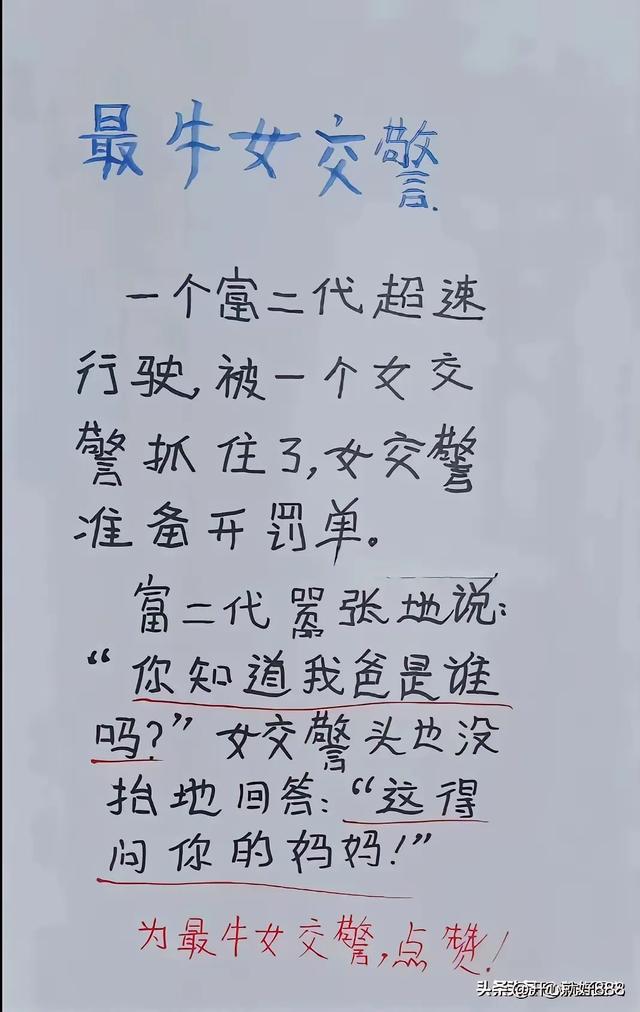 最牛女交警.
一个富二代超速
行驶,被一个女交
警抓住了,女交警
准备开罚单。
富二代嚣张地说:
“你知道我爸是谁
吗?”女交警头也没
抬地回答:“这得
问你的妈妈!”
为最牛女交警,点赞!